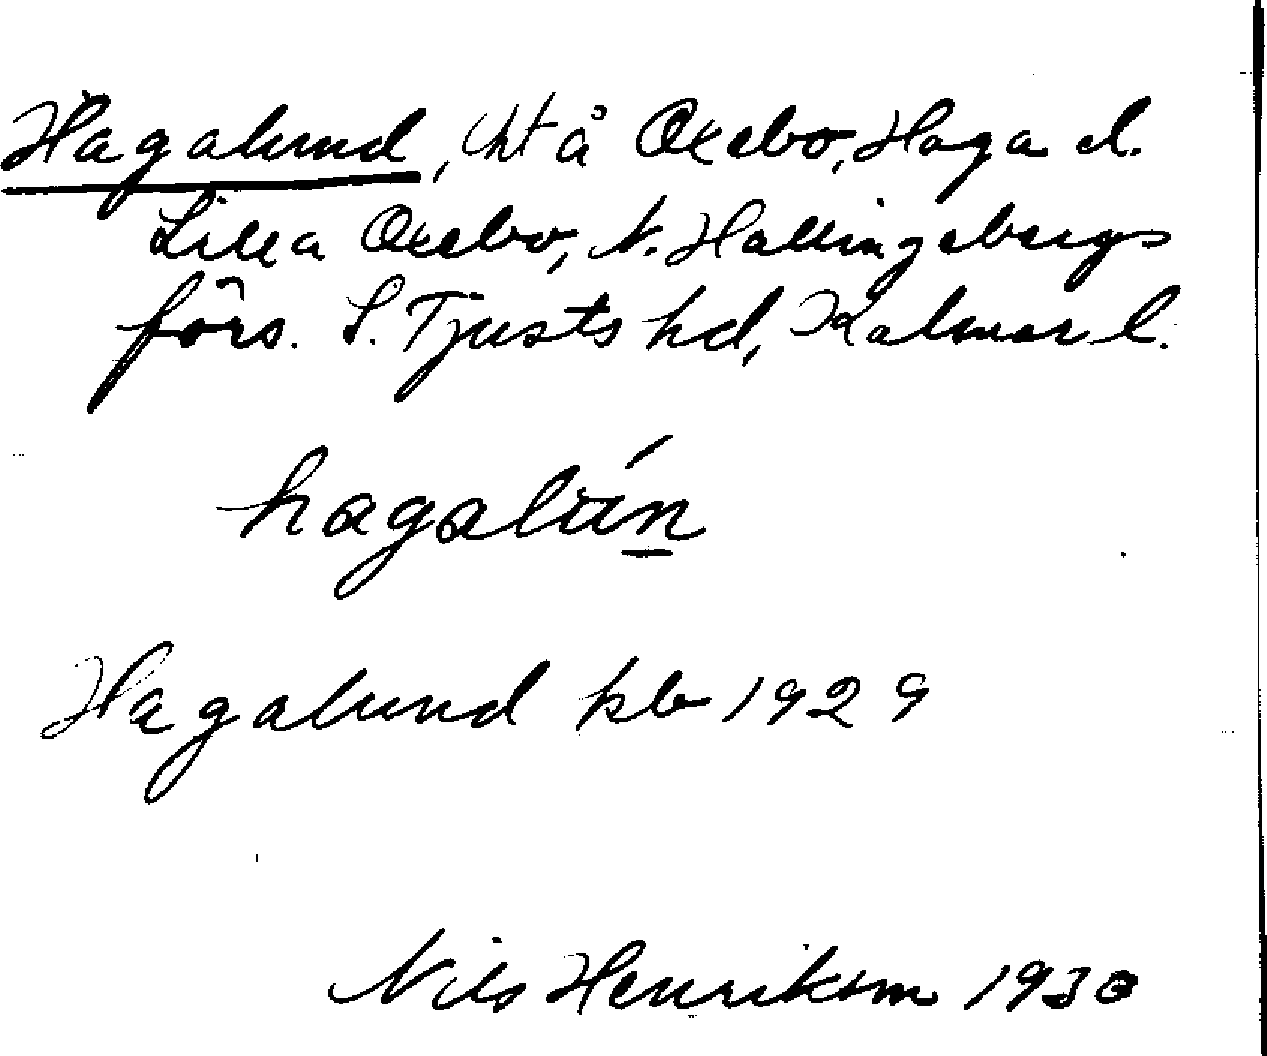 Hagalund, lht å Oxebo, Haga el.
Lilla Oxebo, N. Hallingebergs
förs. S. Tjusts hd, Kalmar l.
hagalún
Hagalund kb 1929
Nils Henrikson 1930